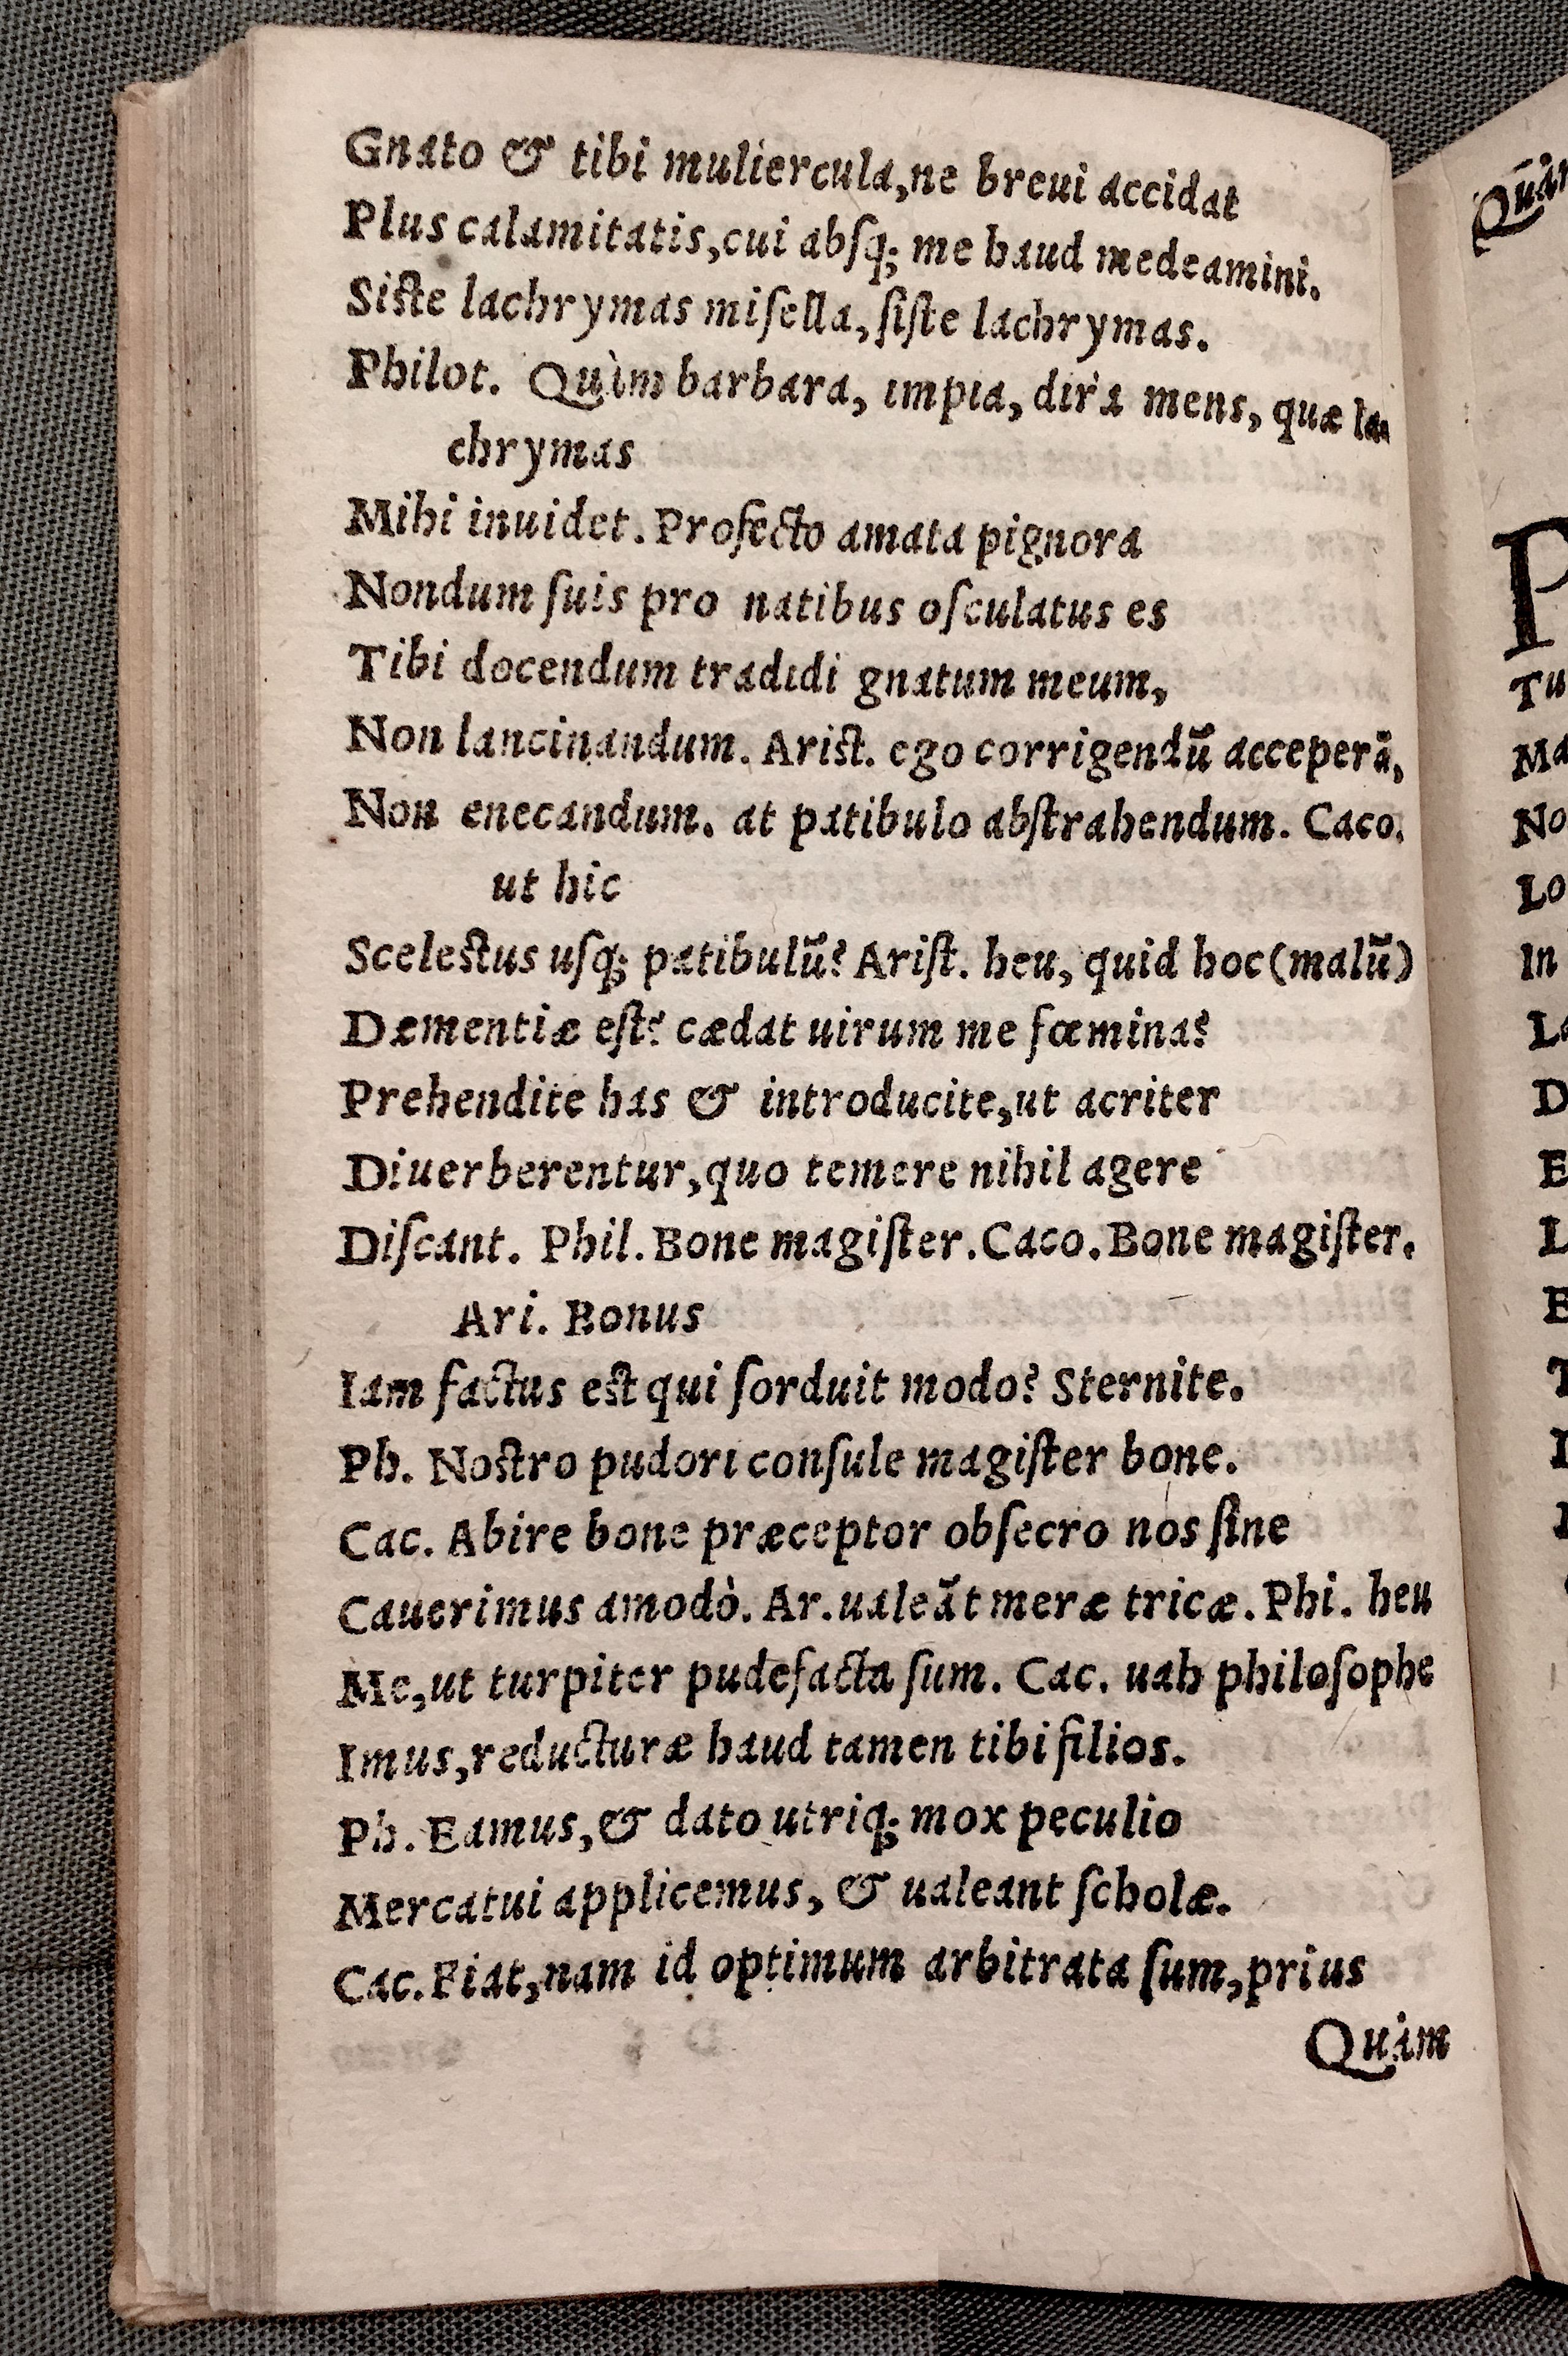 Gnato & tibi muliercula,ne breui accidat
Plus calamitatis,cui absq; me haud medeamini.
Siste lachrymas misella, siste lachrymas.
Philot. Quàm barbara, impia, dira mens, quæ la
chrymas
Mihi inuidet. Profecto amata pignora
Nondum suis pro natibus osculatus es
Tibi docendum tradidi gnatum meum,
Non lancinandum. Arist. ego corrigendū acceperā,
Non enecandum. at patibulo abstrahendum. Caco.
ut hic
Scelestus usq; patibulū? Arist. heu, quid hoc (malū)
Dæmentiæ est? cædat uirum me fœmina?
Prehendite has & introducite,ut acriter
Diuerberentur,quo temere nihil agere
Discant. Phil. Bone magister. Caco. Bone magister.
Ari. Bonus
Iam factus est qui sorduit modo? Sternite.
Ph. Nostro pudori consule magister bone.
Cac. Abire bone præceptor obsecro nos sine
Cauerimus amodò. Ar. ualeāt meræ tricæ. Phi. heu
Me,ut turpiter pudefacta sum. Cac. uah philosophe
Imus,reducturæ haud tamen tibi filios.
Ph. Eamus,& dato utriq; mox peculio
Mercatui applicemus, & ualeant scholæ.
Cac. Fiat,nam id optimum arbitrata sum,prius
Quàm
Tu
No
Lo
In